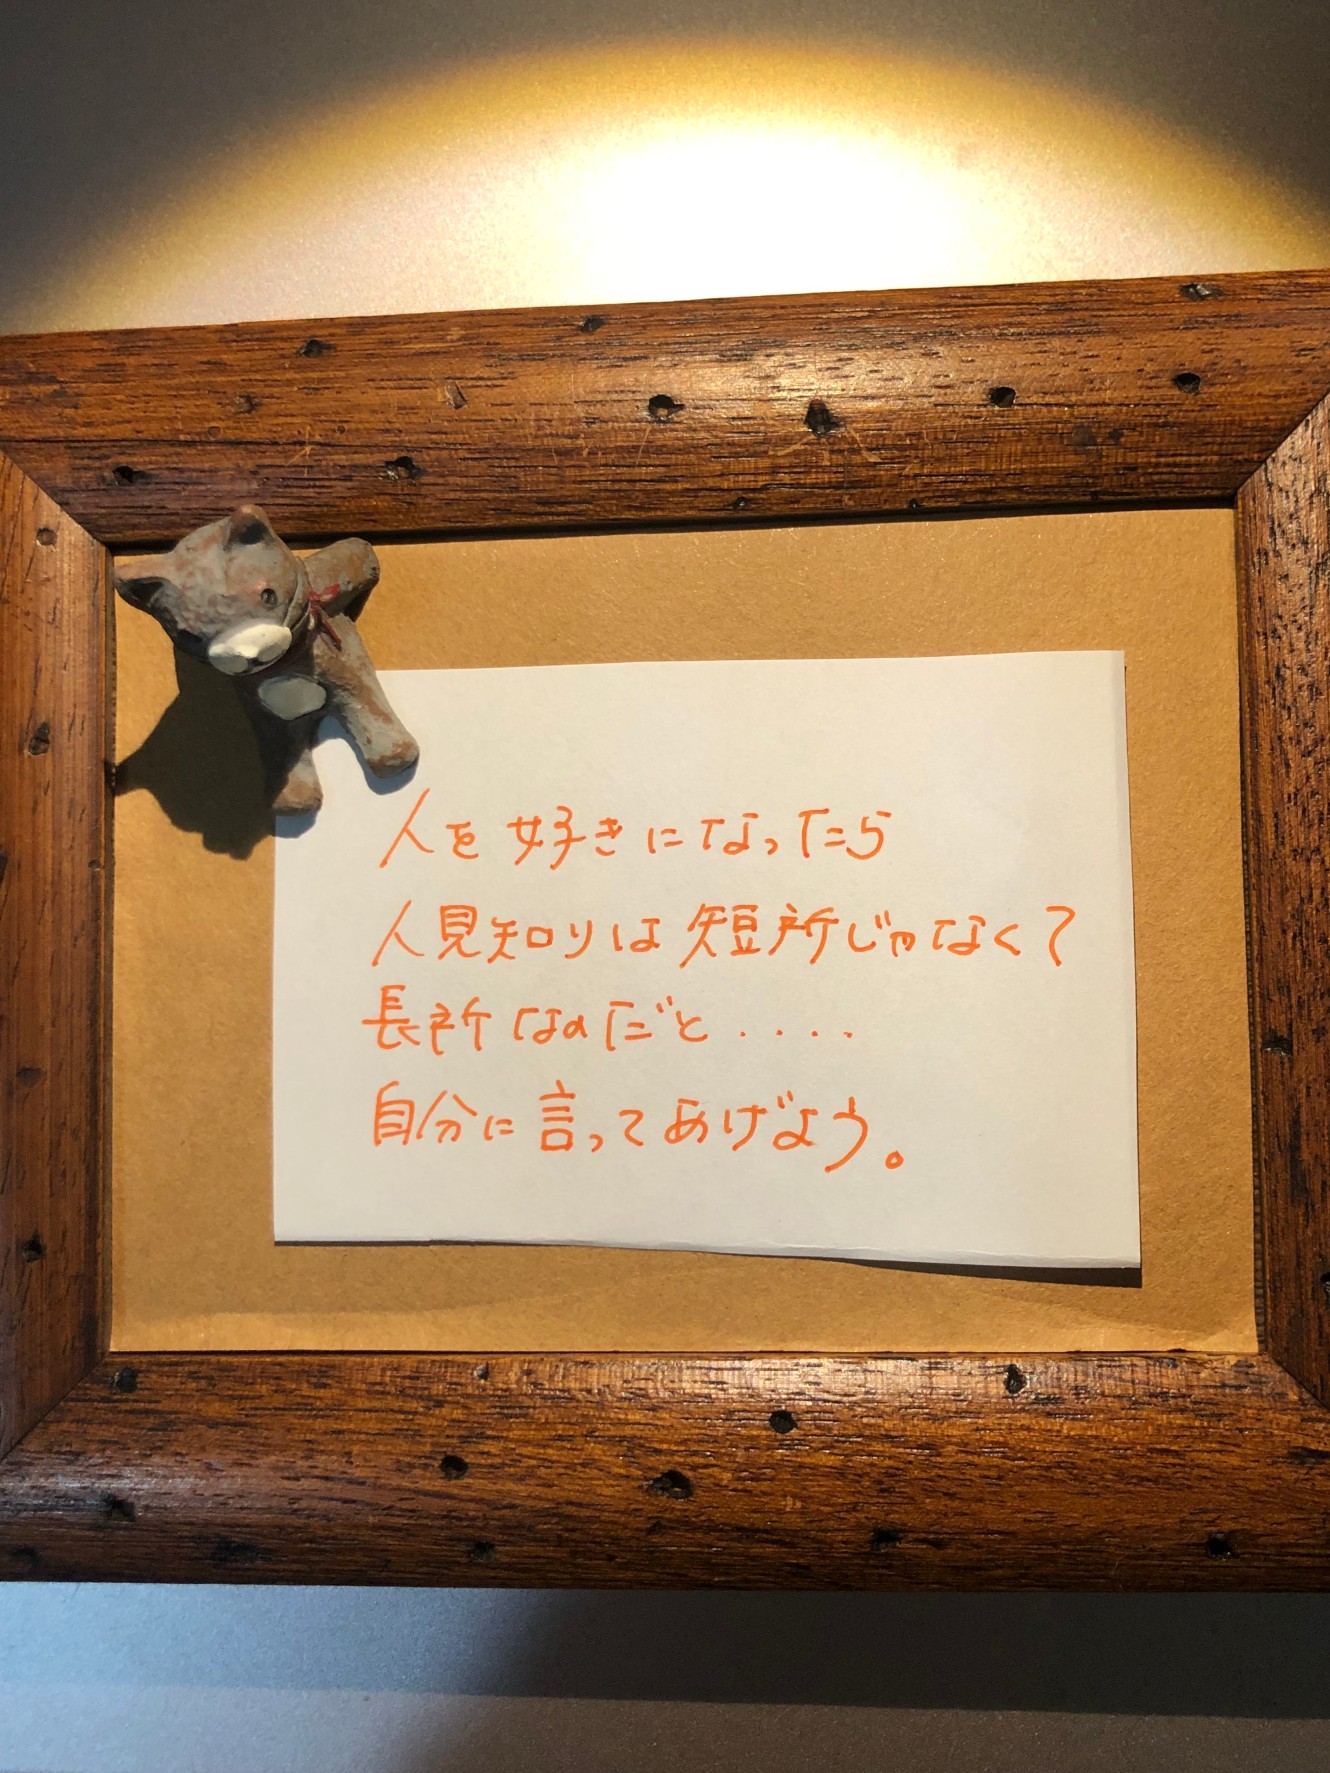 人を好きになったら
人見知りは短所じゃなくて
長所なのだと....
自分に言ってあげよう。